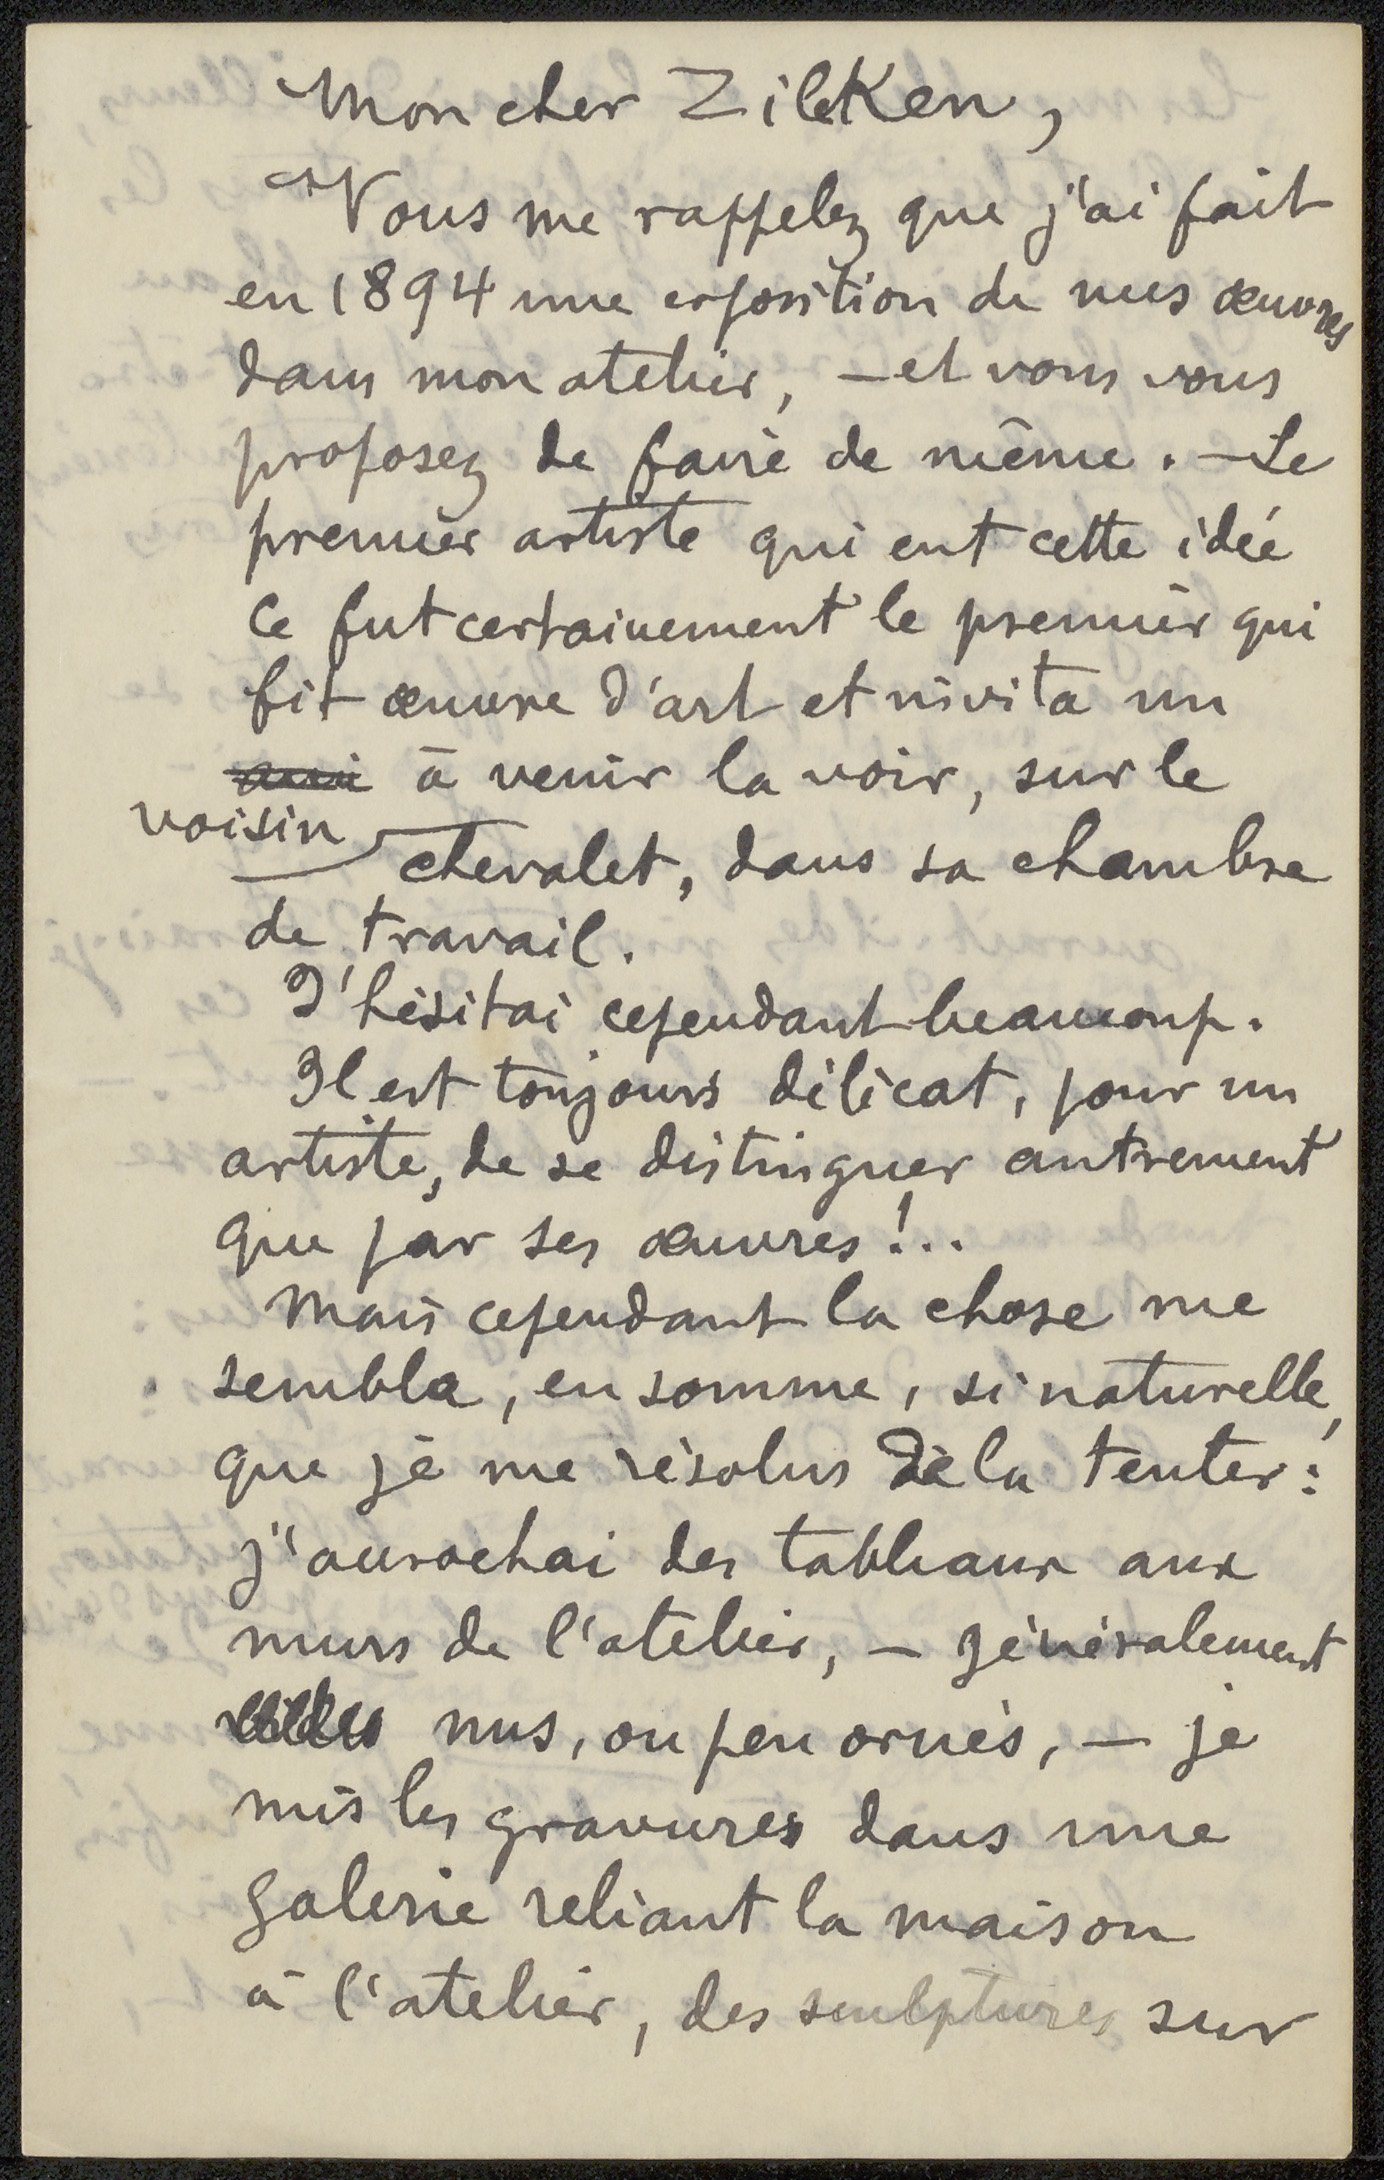 Mon cher Zilcken,
Vous me rappelez que j'ai fait
en 1894 une exposition de mes œuvres
dans mon atelier, — et vous vous
proposez de faire de même. — Le
premier artiste qui eut cette idée
ce fut certainement le premier qui
fit œuvre d'art et invita un
ami à venir la voir, sur le
voisin
chevalet, dans sa chambre
de travail.
J'hésitai cependant beaucoup.
Il est toujours délicat, pour un
artiste, de se distinguer autrement
que par ses œuvres!..
Mais cependant la chose me
sembla, en somme, si naturelle,
que je me résolus de la tenter:
j'accrochai des tableaux aux
murs de l'atelier, — généralement
nus, ou peu ornés, — je
mis les gravures dans une
galerie reliant la maison
à l'atelier, des sculptures sur